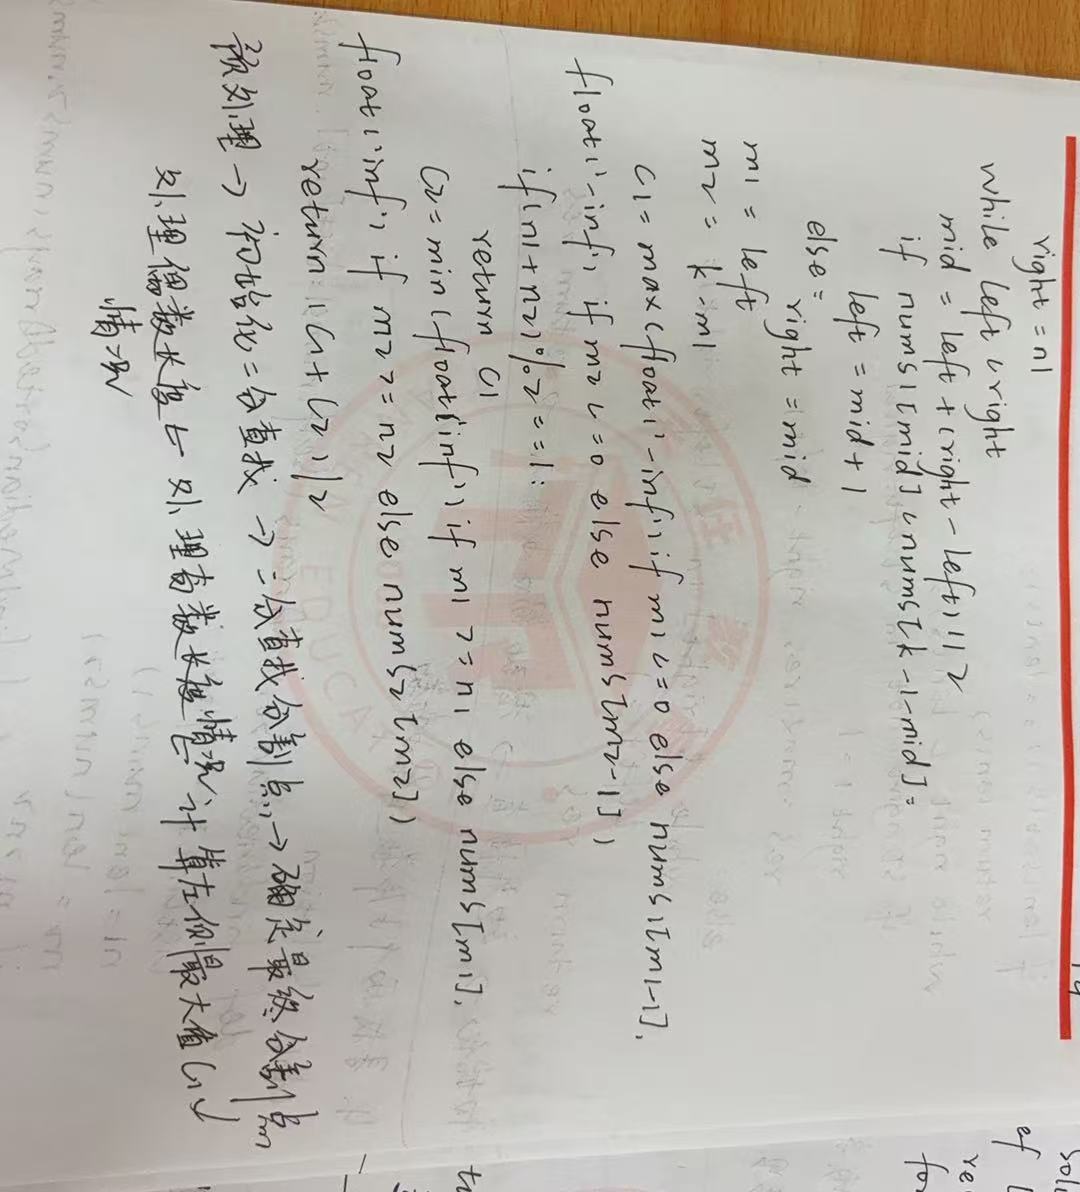 right = n1
while left < right
mid = left + (right - left) // 2
if nums1[mid] < nums[k-1-mid] =
left = mid + 1
else =
right = mid
m1 = left
m2 = k - m1
C1 = max(float('-inf') if m1 <= 0 else nums1[m1-1],
float('-inf') if m2 <= 0 else nums[m2-1])
if (n1 + n2) % 2 == 1:
return C1
C2 = min(float('inf') if m1 >= n1 else nums[m1],
float('inf') if m2 >= n2 else nums2[m2])
return (C1 + C2) / 2
预处理 → 初始化二分查找 → 二分查找分割点 → 确定最终分割点m
处理偶数长度 ← 处理奇数长度情况 ← 计算左侧最大值C1 ↓
情况